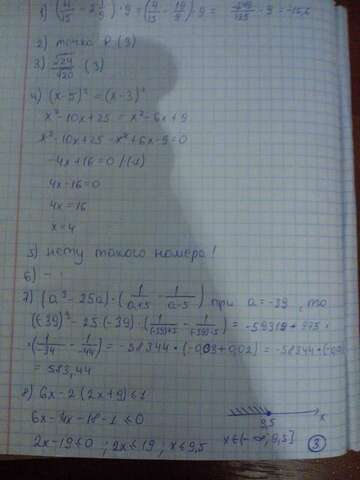 2) точка P (3)
3) √24/√20 (3)
4) (x-5)² = (x-3)²
x²-10x+25 = x²-6x+9
x²-10x+25-x²+6x-9=0
-4x+16=0 /(-1)
4x-16=0
4x=16
x=4
5) нету такого номера!
6) -
7) (a³-25a)·(1/(a+5) - 1/(a-5)) при a=-39, то
((-39)³-25(-39)·(1/((-39)+5) - 1/((-39)-5)) = -59319+975×
×(1/-34 - 1/-44) = -58344·(-0,03+0,02) = -58344·(-0,01)
= 583,44
8) 6x-2(2x+9)≤1
6x-4x-18-1≤0
2x-19≤0 ; 2x≤19 ; x≤9,5
9,5 x
x∈(-∞;9,5] (3)